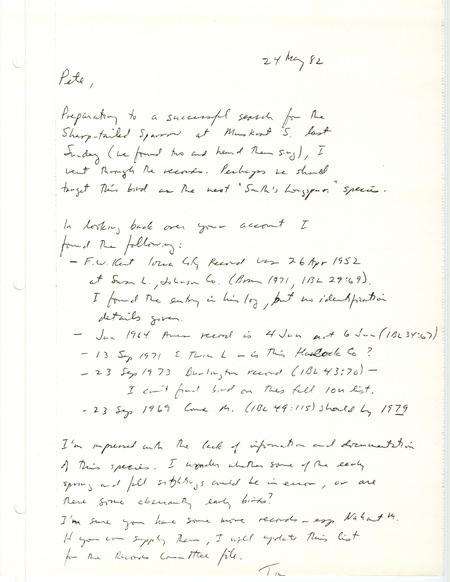 24 May 82
Pete,
Preparatory to a successful search for the
Sharp-tailed Sparrow at Muskrat S. last
Sunday (we found two and heard them sing), I
went through the records. Perhaps we should
target this bird as the next "Smith's Longspur" species.
In looking back over your account I
found the following:
- F.W. Kent Iowa City Record was 26 Apr 1952
at Swan L., Johnson Co. (Brown 1971, IBL 29:69).
I found the entry in his log, but no identification
details given.
- Jun 1964 Ames record is 4 Jun not 6 Jun (IBL 34:67)
- 13 Sep 1971 E Twin L - is this Hancock Co?
- 23 Sep 1973 Burlington record (IBL 43:70) -
I can't find bird on this fall IOU list.
- 23 Sep 1969 Cone M. (IBL 49:115) should be 1979
I'm impressed with the lack of information and documentation
of this species. I wonder whether some of the early
spring and fall sightings could be in error, or are
there some aberrantly early birds?
I'm sure you have some more records - esp Nahant M.
If you can supply them, I will update this list
for the Records Committee file.
Tim